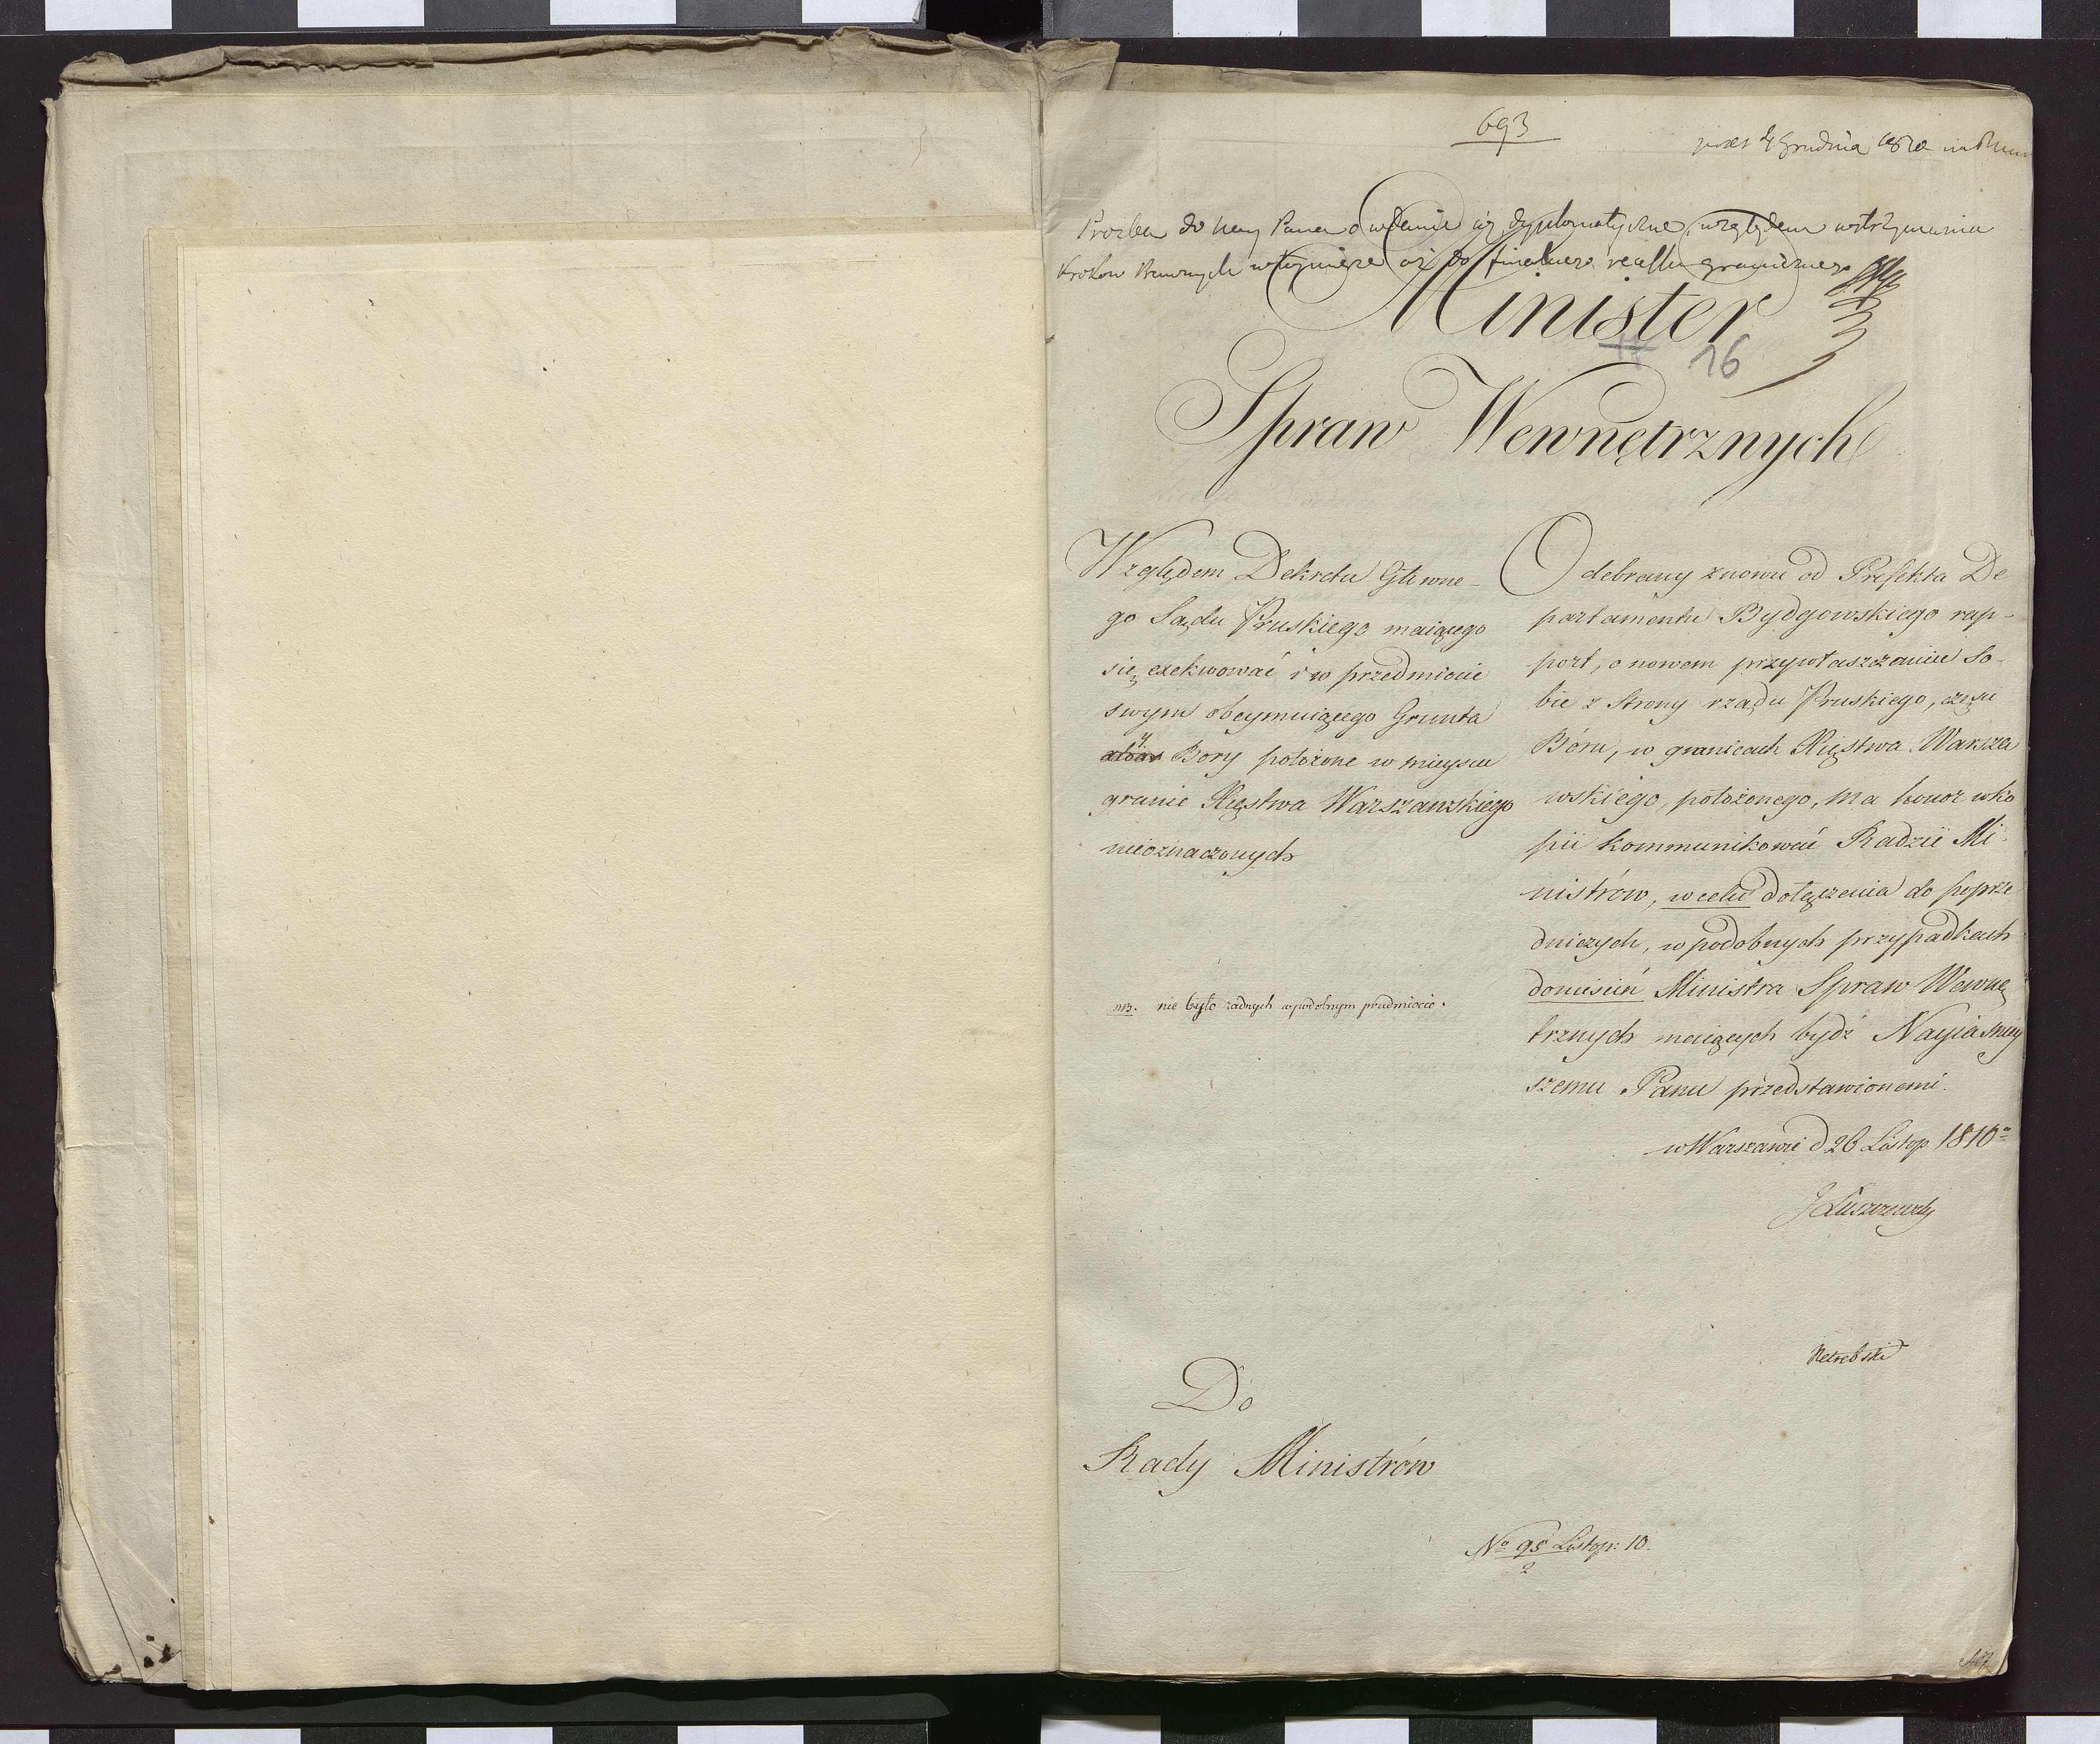 693
4 Grudnia 1810
Prozba do Nay Pana o wdanie się dyplomatyczne, względem wstrzymania
kroków Prawnych w tey mierze aż do finalnego granicznego
Minister
16
Spraw Wewnętrznych
Względem Dekretu Głowne-
go Sądu Pruskiego maiącego
się exekwować i w przedmiocie
swym obeymuiącego Grunta
y Bory położone w mieyscu
granic Xięstwa Warszawskiego
nieoznaczonych
NB. nie było żadnych w podobnym przedmiocie.
Odebrany znowu od Prefekta De
partamentu Bydgowskiego rap-
port, o nowem przywłaszczeniu So-
bie z Strony rządu Pruskiego, części
Boru, w granicach Xięstwa Warsza
wskiego, położonego, ma honor w ko
pii kommunikować Radzie Mi-
nistrów, w celu dołączenia do poprze
dniczych, w podobnych przypadkach
doniesień Ministra Spraw Wewnę
trznych maiących bydź Nayiaśniey
szemu Panu przedstawionemi.
w Warszawie d 26 Listop. 1810
J Łuszczewski
Do
Rady Ministrów
No 95 Listop: 10.
2